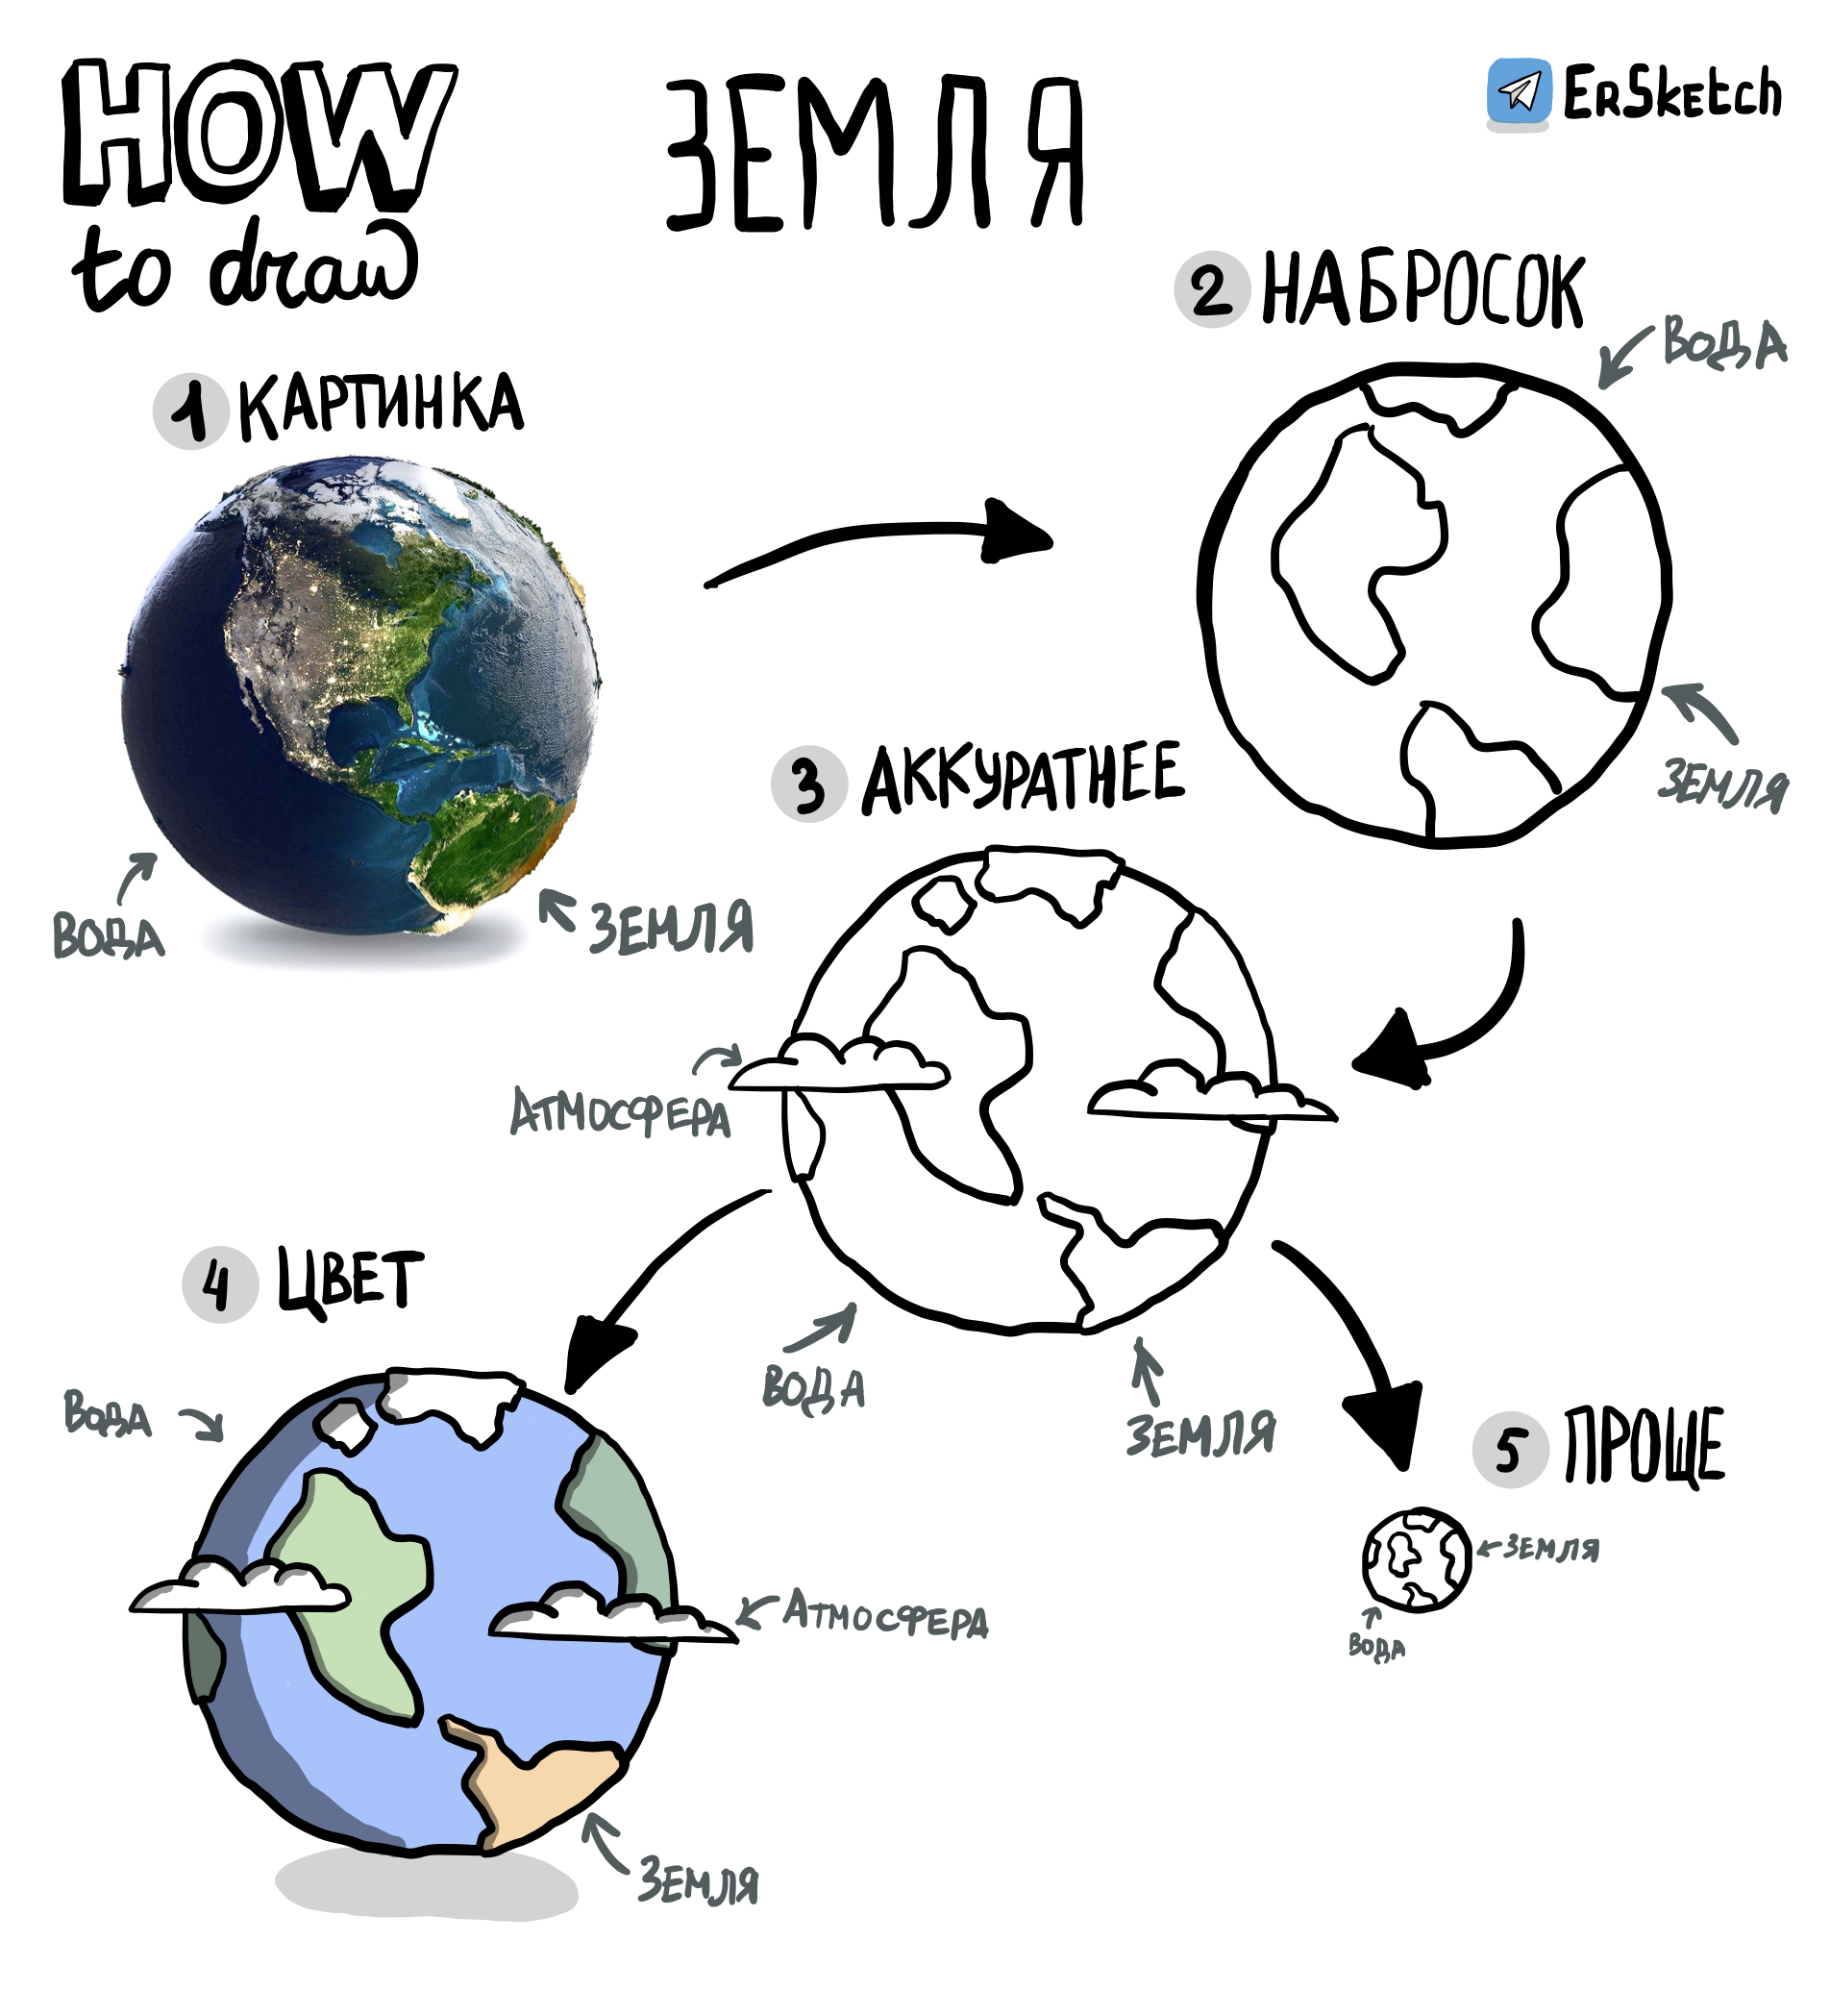 HOW
to draw
ЗЕМЛЯ
ErSketch
1 КАРТИНКА
ВОДА
ЗЕМЛЯ
2 НАБРОСОК
ВОДА
ЗЕМЛЯ
3 АККУРАТНЕЕ
АТМОСФЕРА
ВОДА
ЗЕМЛЯ
4 ЦВЕТ
ВОДА
АТМОСФЕРА
ЗЕМЛЯ
5 ПРОЩЕ
ЗЕМЛЯ
ВОДА